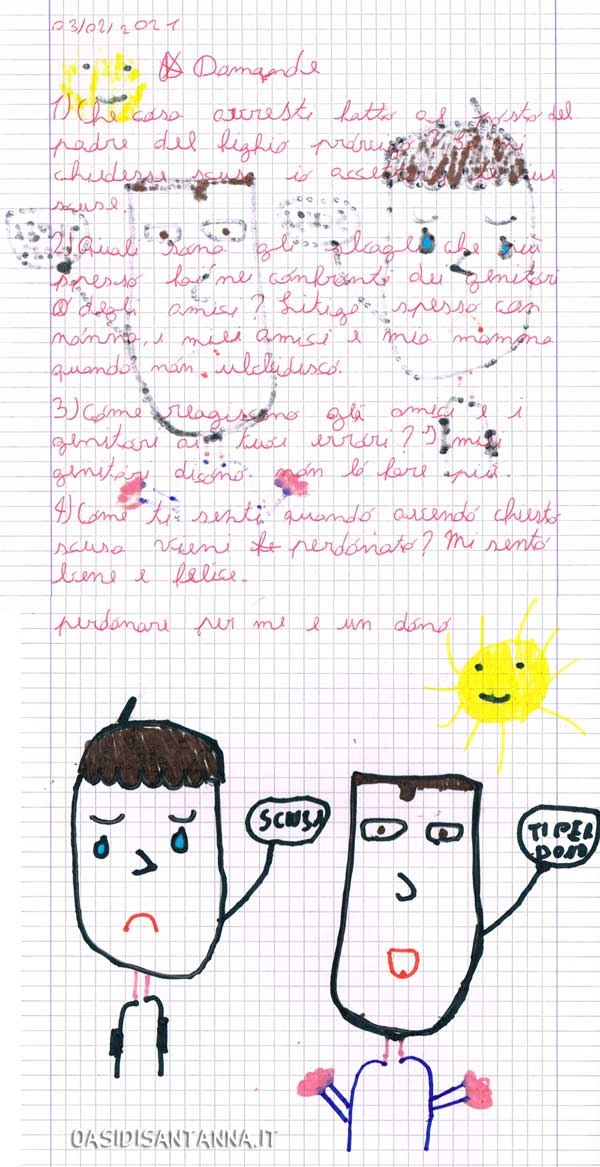 03/02/2021
Domande
1) Che cosa avresti fatto al posto del
padre del figlio prodigo? Se mi
chiedesse scusa io accetterei le sue
scuse.
2) Quali sono gli sbagli che
spesso fai nei confronti dei genitori
o degli amici? Litigo spesso con
nonno, i miei amici e mia mamma
quando non ubbidisco.
3) Come reagiscono gli amici e i
genitori ai tuoi errori? I miei
genitori dicono non lo fare più.
4) Come ti senti quando avendo chiesto
scusa vieni perdonato? Mi sento
bene e felice.
perdonare per me e un dono
SCUSA
TI PER
DONO
OASIDISANTANNA.IT